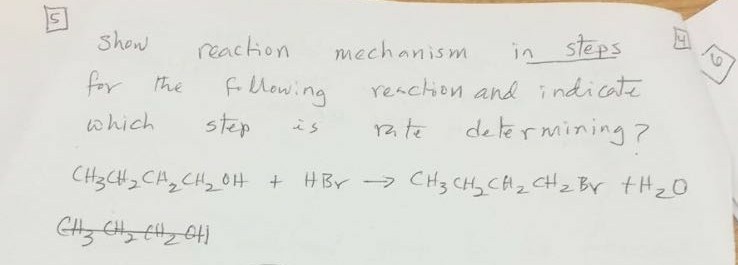 5
Show reaction mechanism in steps
4
6
for the following reaction and indicate
which step is rate determining?
CH₃CH₂CH₂CH₂OH + HBr → CH₃CH₂CH₂CH₂Br + H₂O
CH₃CH₂CH₂OH